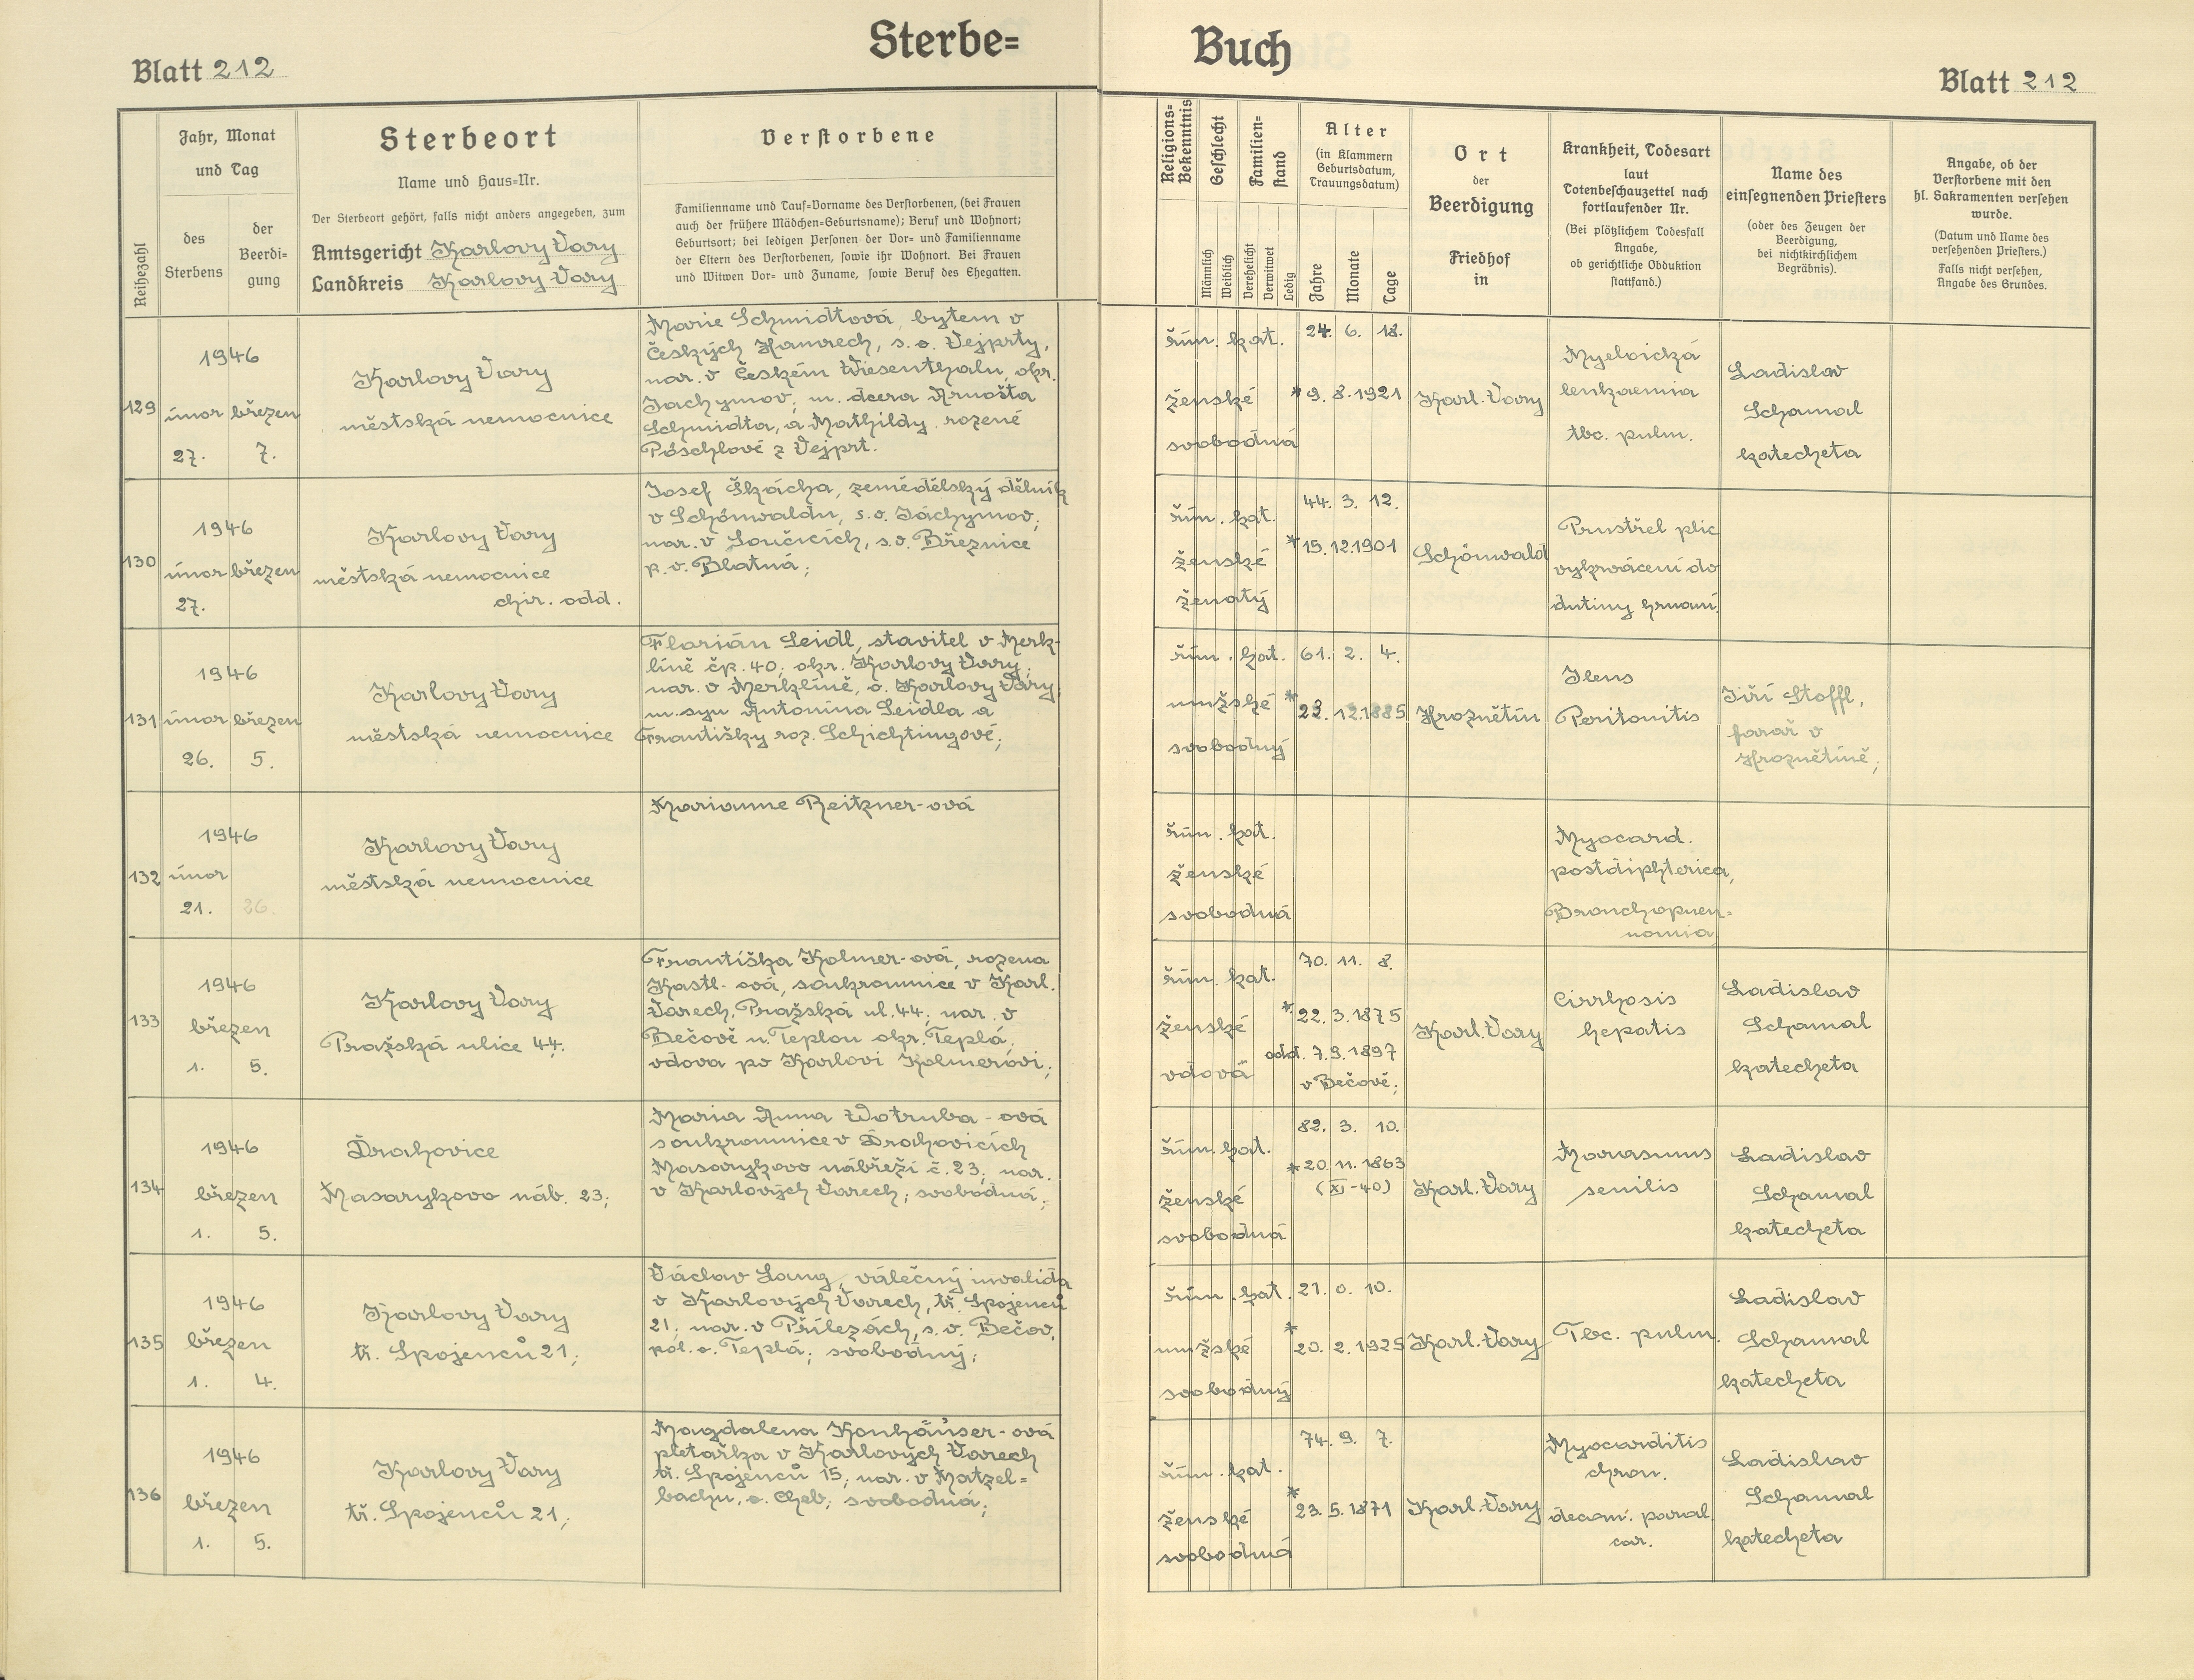 Sterbe=
Blatt 212
Reihezahl
Jahr, Monat
und Tag
des
Sterbens
der
Beerdi-
gung
Sterbeort
Name und Haus-Nr.
Der Sterbeort gehört, falls nicht anders angegeben, zum
Amtsgericht Karlovy Vary
Landkreis Karlovy Vary
Verstorbene
Familienname und Tauf-Vorname des Verstorbenen, (bei Frauen
auch der frühere Mädchen-Geburtsname); Beruf und Wohnort;
Geburtsort; bei ledigen Personen der Vor- und Familienname
der Eltern des Verstorbenen, sowie ihr Wohnort. Bei Frauen
und Witwen Vor- und Zuname, sowie Beruf des Ehegatten.
129
1946
únor březen
27. 7.
Karlovy Vary
městská nemocnice
Marie Schmidtová, bytem v
Českých Hamrech, s.o. Vejprty,
nar. v Českém Wiesenthalu, okr.
Jáchymov; m. dcera Arnošta
Schmidta, a Mathildy rozené
Pöschlové z Vejprt.
130
1946
únor březen
27.
Karlovy Vary
městská nemocnice
chir. odd.
Josef Škácha, zemědělský dělník
v Schönwaldu, s.o. Jáchymov;
nar. v Loučicích, s.o. Březnice
p. o. Blatná;
131
1946
únor březen
26. 5.
Karlovy Vary
městská nemocnice
Florián Seidl, stavitel v Merk-
líně čp. 40; okr. Karlovy Vary;
nar. v Merklíně, o. Karlovy Vary;
m. syn Antonína Seidla a
Františky roz. Schichtingové;
132
1946
únor
21. 26.
Karlovy Vary
městská nemocnice
Marianne Reitzner-ová
133
1946
březen
1. 5.
Karlovy Vary
Pražská ulice 44.
Františka Kolmer-ová, rozena
Kastl-ová, soukromnice v Karl.
Varech, Pražská ul. 44; nar. v
Bečově n. Teplou okr. Teplá;
vdova po Karlovi Kolmerovi;
134
1946
březen
1. 5.
Drahovice
Masarykovo náb. 23;
Maria Anna Wotruba-ová
soukromnice v Drahovicích
Masarykovo nábřeží č. 23; nar.
v Karlových Varech; svobodná;
135
1946
březen
1. 4.
Karlovy Vary
tř. Spojenců 21;
Václav Lang, válečný invalida
v Karlových Varech, tř. Spojenců
21; nar. v Přílezách, s. o. Bečov,
pol. o. Teplá; svobodný;
136
1946
březen
1. 5.
Karlovy Vary
tř. Spojenců 21;
Magdalena Konhäuser-ová
pletařka v Karlových Varech
tř. Spojenců 15; nar. v Matzel=
bachu, o. Cheb; svobodná;
Buch
Blatt 212
Religions-
Bekenntnis
Geschlecht
Männlich
Weiblich
Familien-
stand
Verehelicht
Verwitwet
Ledig
Alter
(in Klammern
Geburtsdatum,
Trauungsdatum)
Jahre
Monate
Tage
Ort
der
Beerdigung
Friedhof
in
Krankheit, Todesart
laut
Totenbeschauzettel nach
fortlaufender Nr.
(Bei plötzlichem Todesfall
Angabe,
ob gerichtliche Obduktion
stattfand.)
Name des
einsegnenden Priesters
(oder des Zeugen der
Beerdigung,
bei nichtkirchlichem
Begräbnis).
Angabe, ob der
Verstorbene mit den
hl. Sakramenten versehen
wurde.
(Datum und Name des
versehenden Priesters.)
Falls nicht versehen,
Angabe des Grundes.
řím. kat.
ženské
svobodná
24. 6. 18.
* 9. 8. 1921
Karl. Vary
Myeloická
lenkaemia
tbc. pulm.
Ladislav
Schamal
katecheta
řím. kat.
ženské
ženatý
44. 3. 12.
* 15. 12. 1901
Schönwald
Prustřel plic
vykrvácení do
dutiny hrudní
řím. kat.
mužské
svobodný
61. 2. 4.
* 22. 12. 1885
Hroznětín
Ileus
Peritonitis
Jiří Stoffl,
farář v
Hroznětíně;
řím. kat.
ženské
svobodná
Myocard.
postdiphterica,
Bronchopneu-
nomia
řím. kat.
ženské
vdova
70. 11. 8.
* 22. 3. 1875
odd. 7. 9. 1897
v Bečově;
Karl. Vary
Cirrhosis
hepatis
Ladislav
Schamal
katecheta
řím. kat.
ženské
svobodná
82. 3. 10.
* 20. 11. 1863
(XI-40)
Karl. Vary
Marasmus
senilis
Ladislav
Schamal
katecheta
řím. kat.
mužské
svobodný
21. 0. 10.
* 20. 2. 1925
Karl. Vary
Tbc. pulm.
Ladislav
Schamal
katecheta
řím. kat.
ženské
svobodná
74. 9. 7.
* 23. 5. 1871
Karl. Vary
Myocarditis
chron.
cor.
Ladislav
Schamal
katecheta